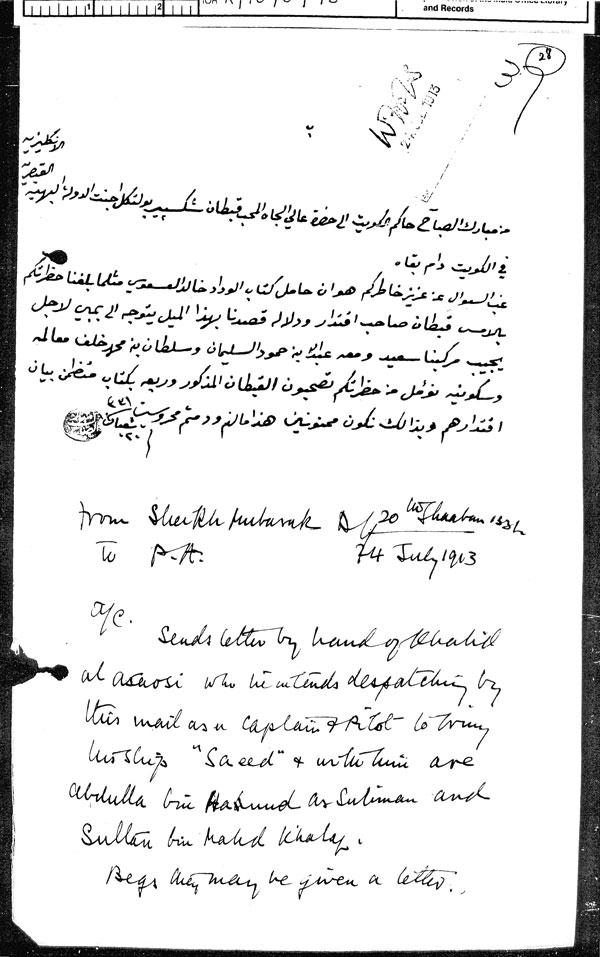 and Records
28
الانكليزيه
القيصريه
من مبارك الصباح حاكم الكويت الى حضرة عالي الجاه المحب قبطان شكسبير بولتكل اجنت الدولة البهية
في الكويت دام بقاه
غب السوال عن عزيز خاطركم هو ان حامل كتاب الوداد خالد العسعوسي مثلما بلغنا حظرتكم
بالامس قبطان صاحب اقتدار ودلاله قصدنا بهذا الميل يتوجه الى بمبي لاجل
يجيب مركبنا سعيد ومعه عبدالله بن حمود السليمان وسلطان بن محمد خلف معالمه
وسكونيه نؤمل من حظرتكم تصحبون القبطان المذكور وربعه بكتاب متظمن بيان
اقتدارهم وبذالك نكون ممنونين هذا ما لزم ودمتم محروسين
From Sheikh Mubarak D/ 20th Shaaban 1331
To P.A. 24 July 1913
A/C.
Sends letter by hand of Khalid
al asaosi who he intends despatching by
this mail as a captain & Pilot to bring
his ship "Saeed" & with him are
Abdulla bin Hamud as Suliman and
Sultan bin Mahd Khalaf.
Begs they may be given a letter.